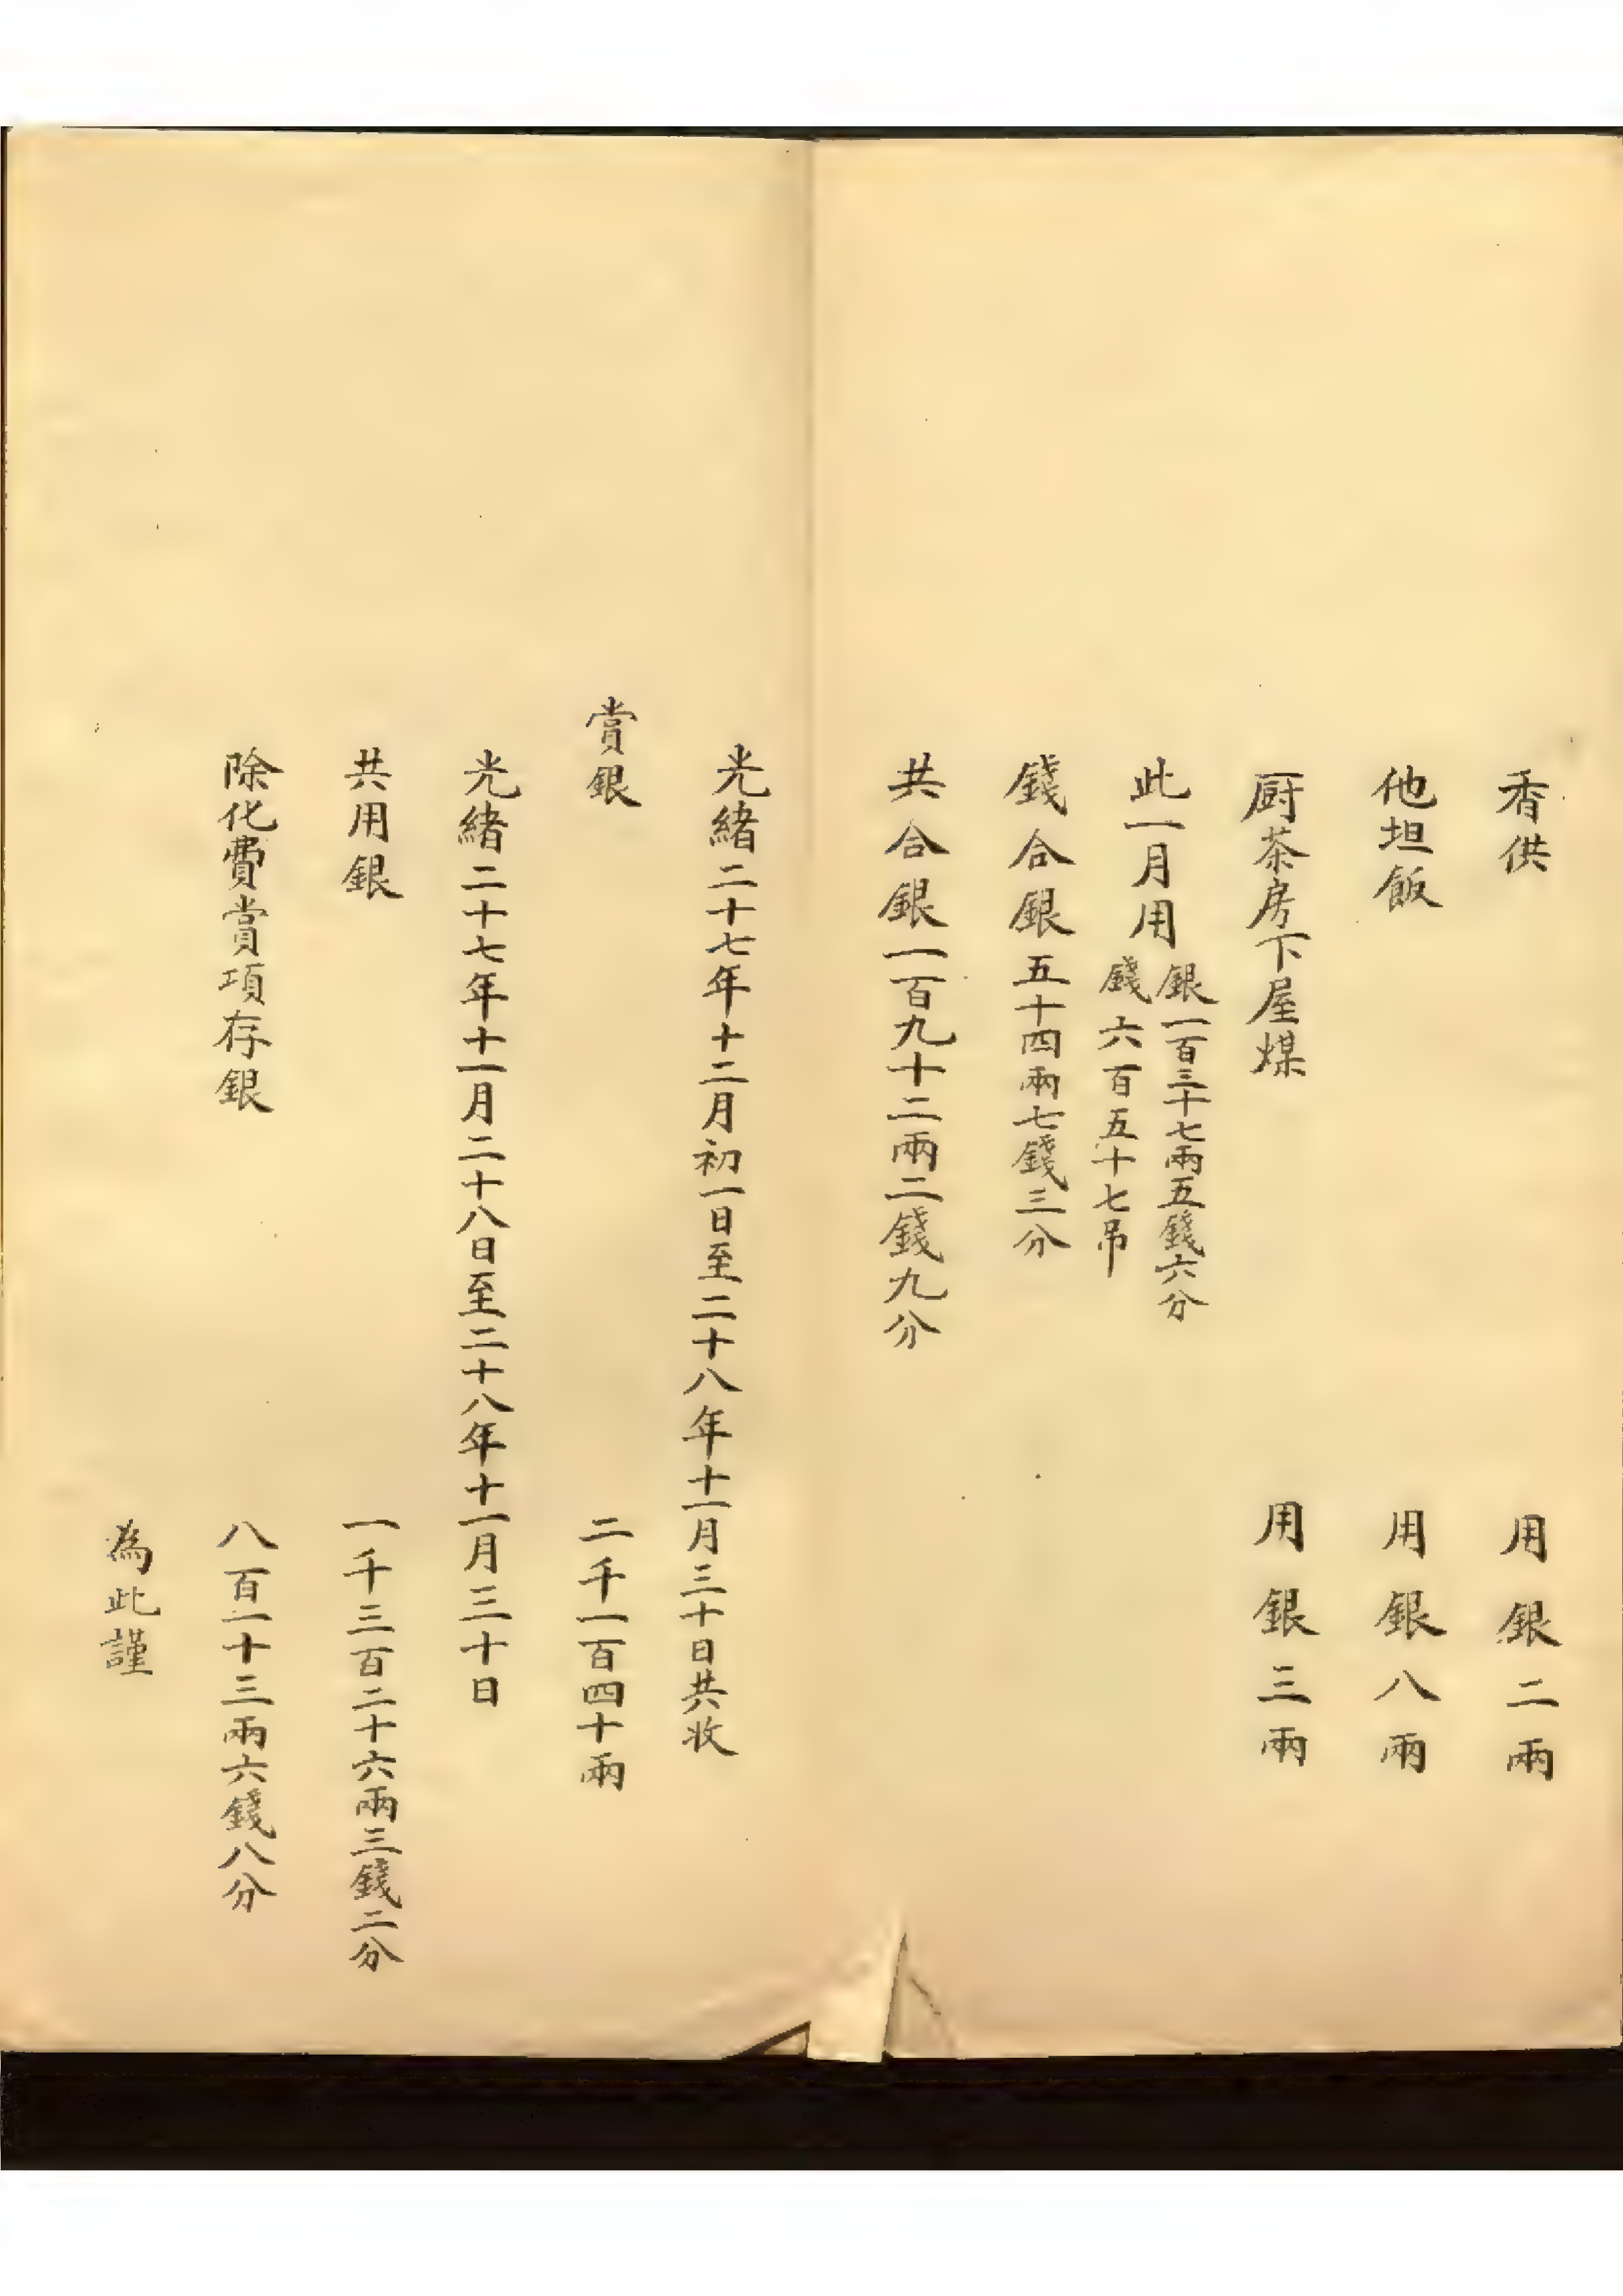 香供 用銀二兩
他坦飯 用銀八兩
厨茶房下屋煤 用銀三兩
此一月用銀一百三十七兩五錢六分
錢六百五十七吊
錢合銀五十四兩七錢三分
共合銀一百九十二兩二錢九分
光緒二十七年十二月初一日至二十八年十一月三十日共收
賞銀 二千一百四十兩
光緒二十七年十一月二十八日至二十八年十一月三十日
共用銀 一千三百二十六兩三錢二分
除化費賞項存銀 八百一十三兩六錢八分
為此謹